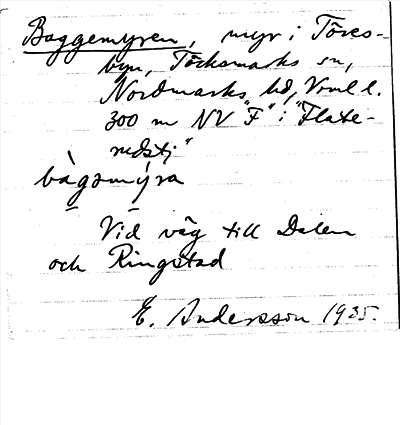 Baggemyren, myr i Töces-
byn, Töcksmarks sn,
Nordmarks hd, Vrml l.
300 m NV "F" i "Flate-
rudstj"
bàgəmýra
Vid väg till Dalen
och Ringstad
E. Andersson 1935.